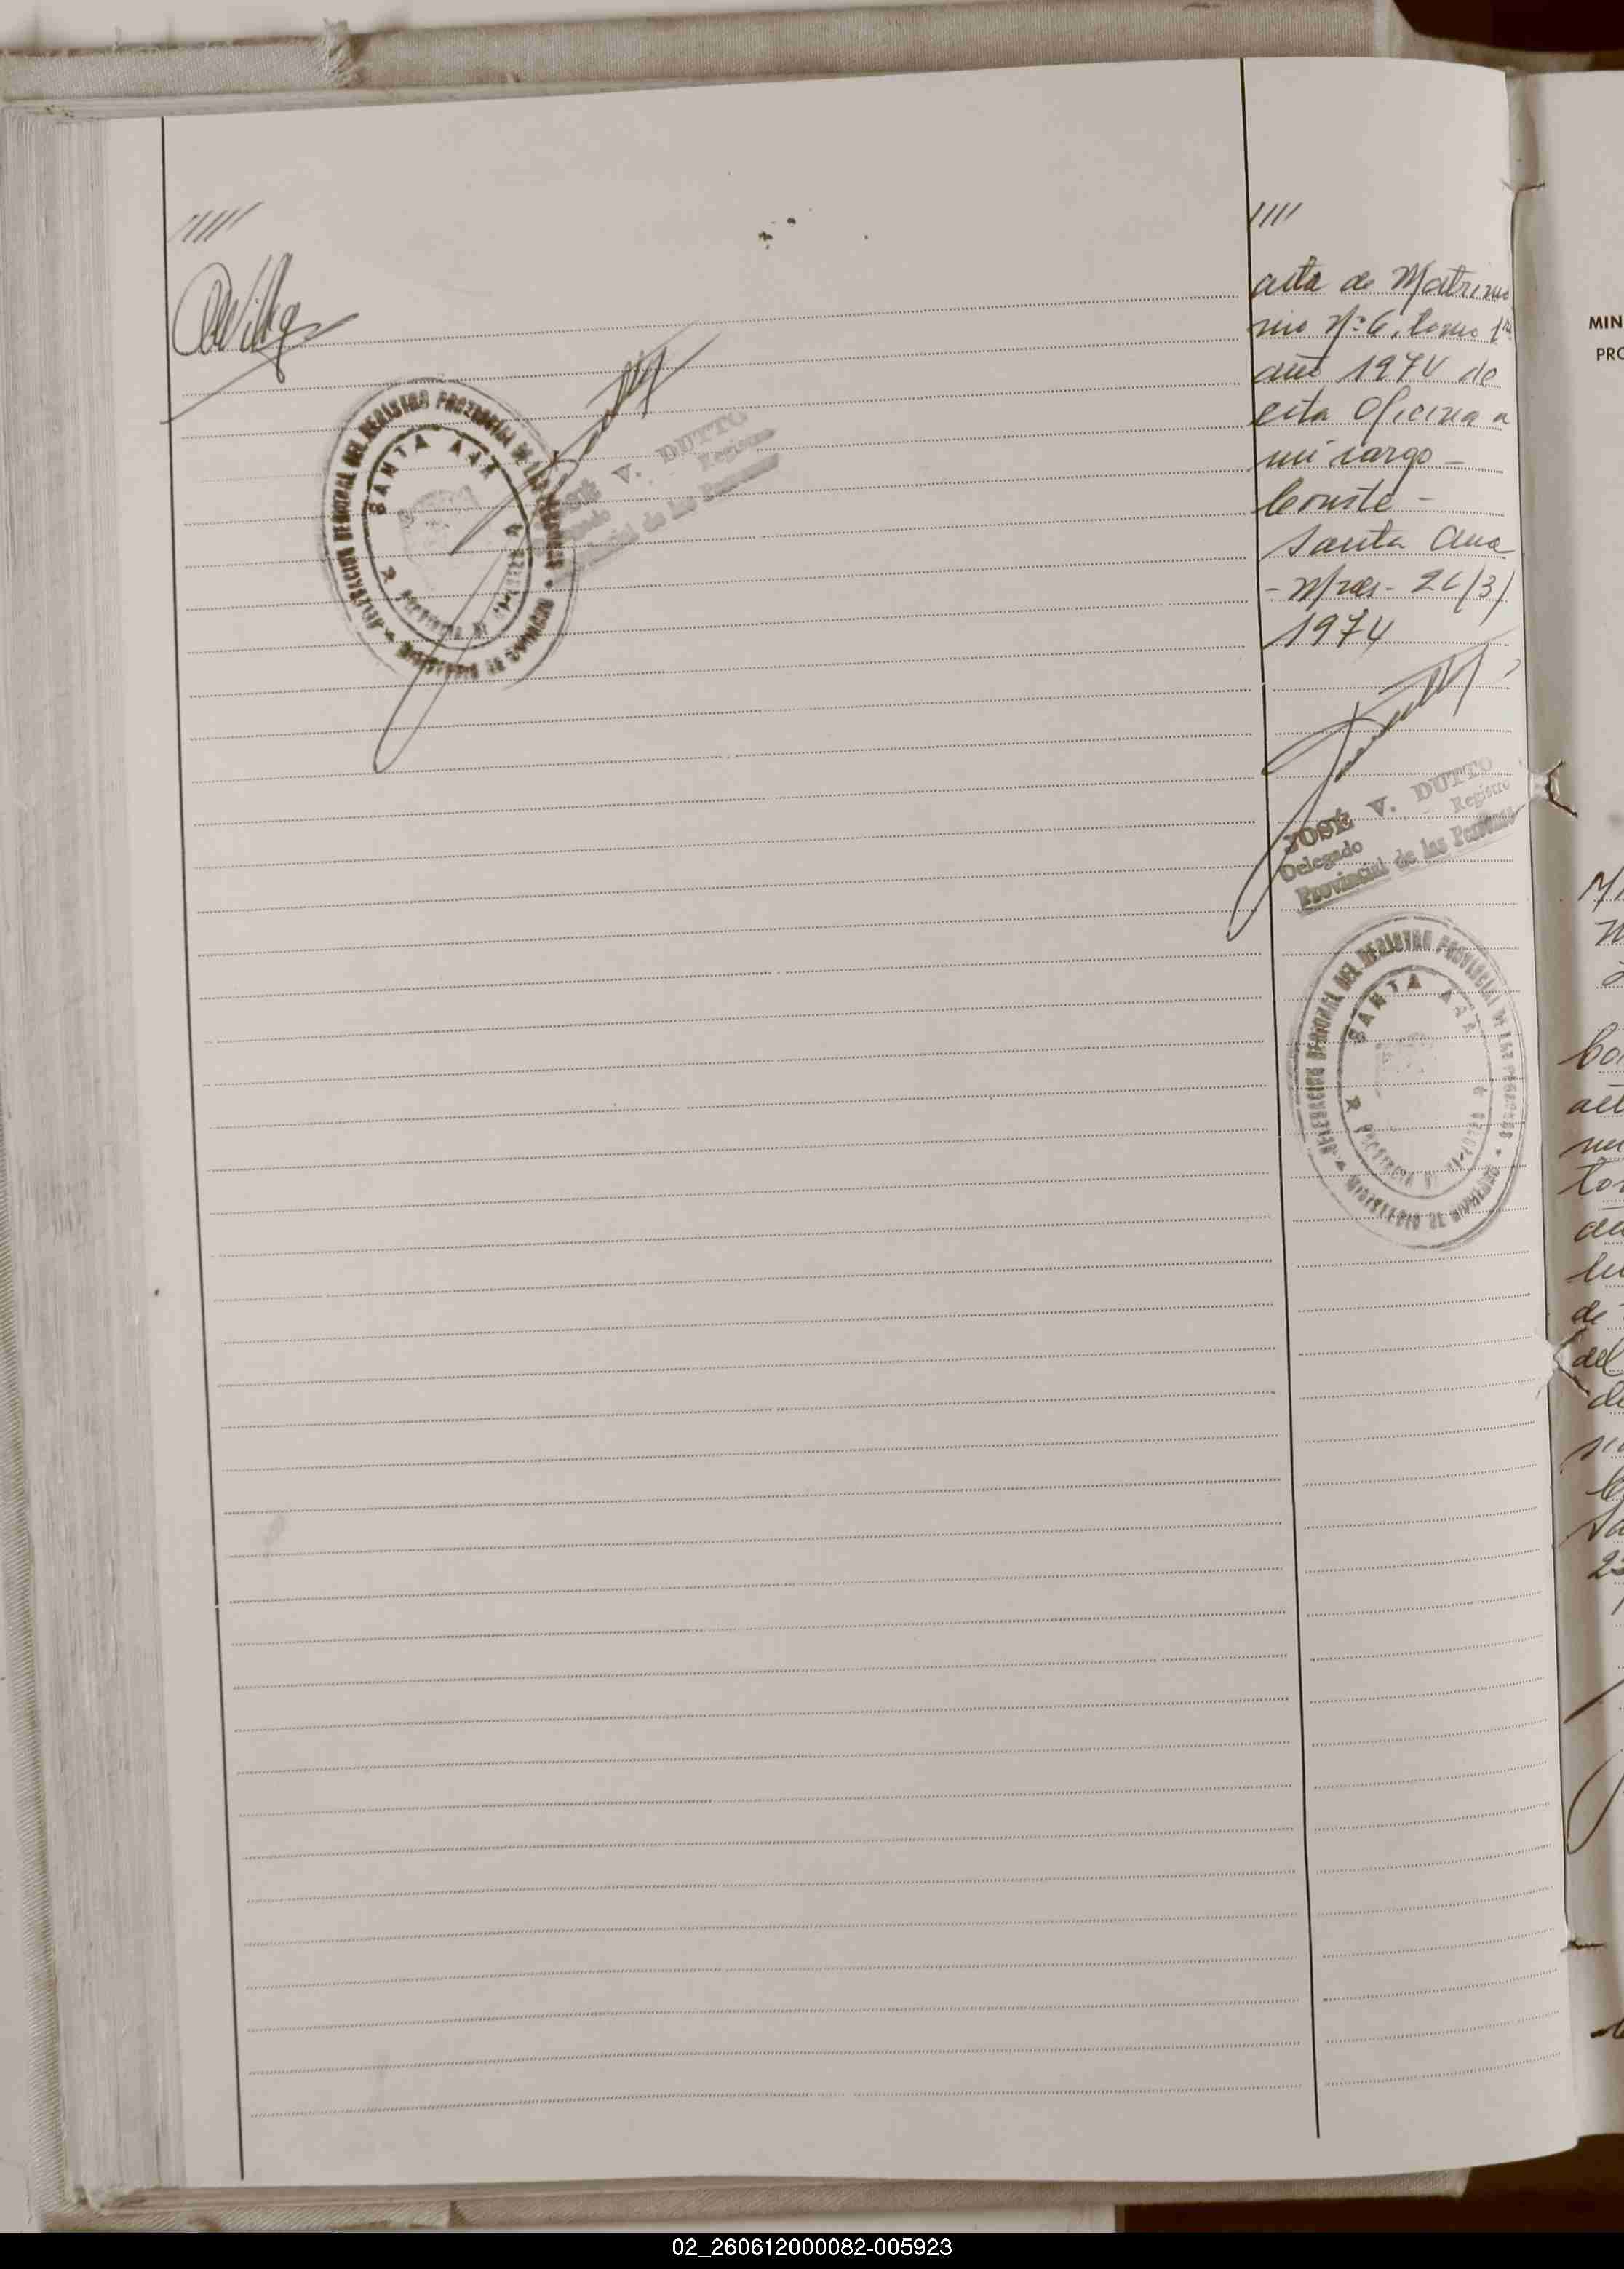 /////
DELEGACION REGIONAL DEL REGISTRO PROVINCIAL DE LAS PERSONAS
SANTA ANA
MINISTERIO DE
JOSÉ V. DUTTO
Delegado Registro
Provincial de las Personas
////
acta de Matrimo
nio Nº 6, tomo 1º
año 1974 de
esta Oficina a
mi cargo -
Conste -
Santa Ana
- Mnes - 26/3/
1974
JOSÉ V. DUTTO
Delegado Registro
Provincial de las Personas
DELEGACION REGIONAL DEL REGISTRO PROVINCIAL DE LAS PERSONAS
SANTA ANA
PROVINCIA DE MISIONES
MINISTERIO DE GOBIERNO
MIN
PRO
de
del
02_260612000082-005923